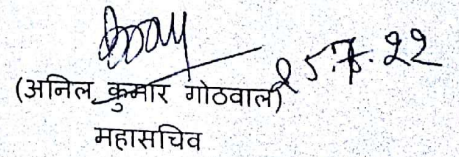 25.7.22
(अनिल कुमार गोठवाल)
महासचिव